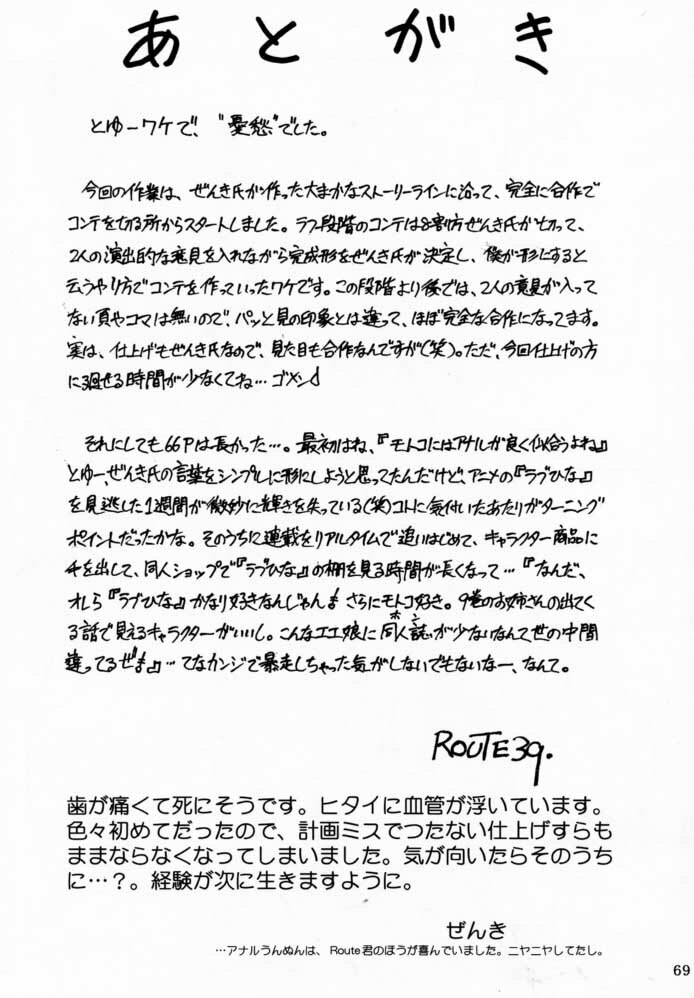 あとがき
とゆーワケで、“憂愁”でした。
今回の作業は、ぜんき氏が作った大まかなストーリーラインに沿って、完全に合作で
コンテを切る所からスタートしました。ラフ段階のコンテは8割方ぜんき氏が切って、
2人の演出的な意見を入れながら完成形をぜんき氏が決定し、僕が形にすると
云うやり方でコンテを作っていったワケです。この段階より後では、2人の意見が入って
ない頁やコマは無いので、パッと見の印象とは違って、ほぼ完全な合作になってます。
実は、仕上げもぜんき氏なので、見た目も合作なんですが(笑)。ただ、今回仕上げの方
に廻せる時間が少なくてね…ゴメン
それにしても66Pは長かった…。最初はね、『モトコにはアナルが良く似合うよね』
とゆー、ぜんき氏の言葉をシンプルに形にしようと思ってたんだけど、アニメの『ラブひな』
を見逃した1週間が微妙に輝きを失っている(笑)コトに気付いたあたりがターニング
ポイントだったかな。そのうちに連載をリアルタイムで追いはじめて、キャラクター商品に
手を出して、同人ショップで『ラブひな』の棚を見る時間が長くなって…『なんだ、
オレら『ラブひな』かなり好きなんじゃん!さらにモトコ好き。9巻のお姉さんの出てく
る話で見えるキャラクターがいいし。こんなエエ娘に同人誌(ホン)が少ないなんて世の中間
違ってるぜ!』…てなカンジで暴走しちゃった気がしないでもないなー、なんて。
ROUTE39.
歯が痛くて死にそうです。ヒタイに血管が浮いています。
色々初めてだったので、計画ミスでつたない仕上げすらも
ままならなくなってしまいました。気が向いたらそのうち
に…?。経験が次に生きますように。
ぜんき
…アナルうんぬんは、Route君のほうが喜んでいました。ニヤニヤしてたし。
69